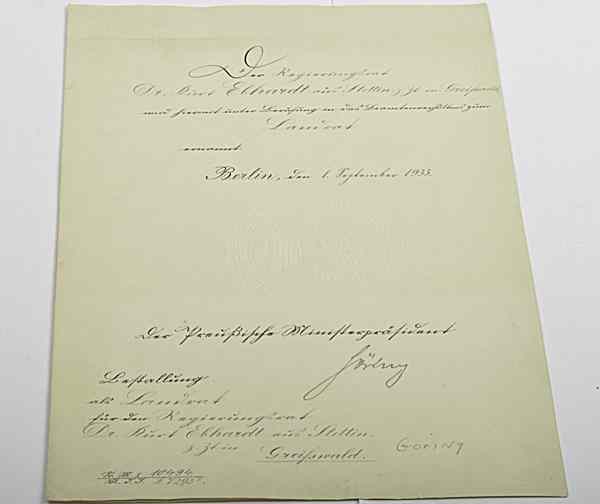 Der Regierungsrat
Dr. Kurt Ebhardt aus Stettin, z Zt in Greifswald
wird hiermit unter Berufung in das Beamtenverhältnis zum
Landrat
ernannt.
Berlin, den 1. September 1933.
Der Preußische Ministerpräsident
Göring
Bestallung
als Landrat
für den Regierungsrat
Dr. Kurt Ebhardt aus Stettin.
z Zt in Greifswald.
Göring
10494